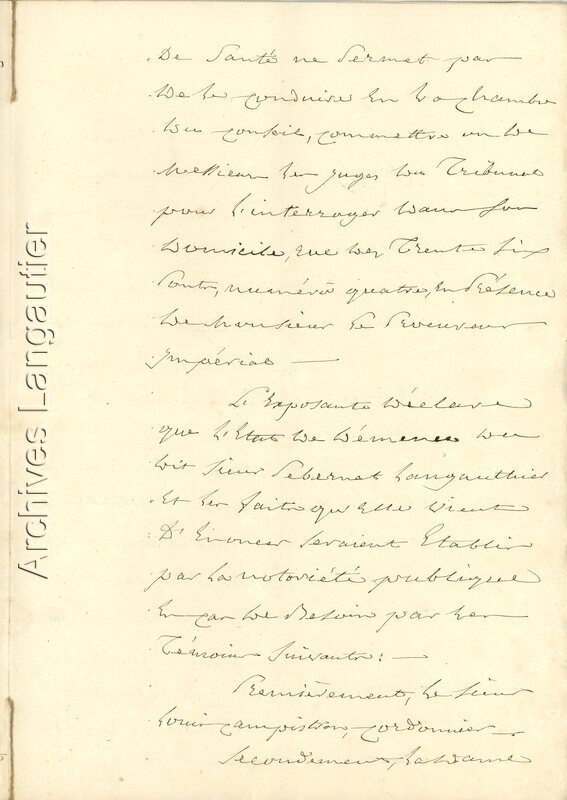 De Santé ne Permet pas
de le conduire en la chambre
du conseil, commettre un de
Messieurs les juges du Tribunal
pour l'interroger dans son
domicile, rue des Trente six
Ponts, numéro quatre, en Présence
de Monsieur le Procureur
Impérial —
L'Exposante déclare
que l'Etat de démence du
dit sieur Langauthier
Et les faits qu'elle vient
D'Enoncer seraient Etablis
par la notoriété publique
En cas de Besoin par les
Témoins suivants : —
Premièrement, le sieur
Louis Campistron, cordonnier
Secondement, la dame
Archives Langautier